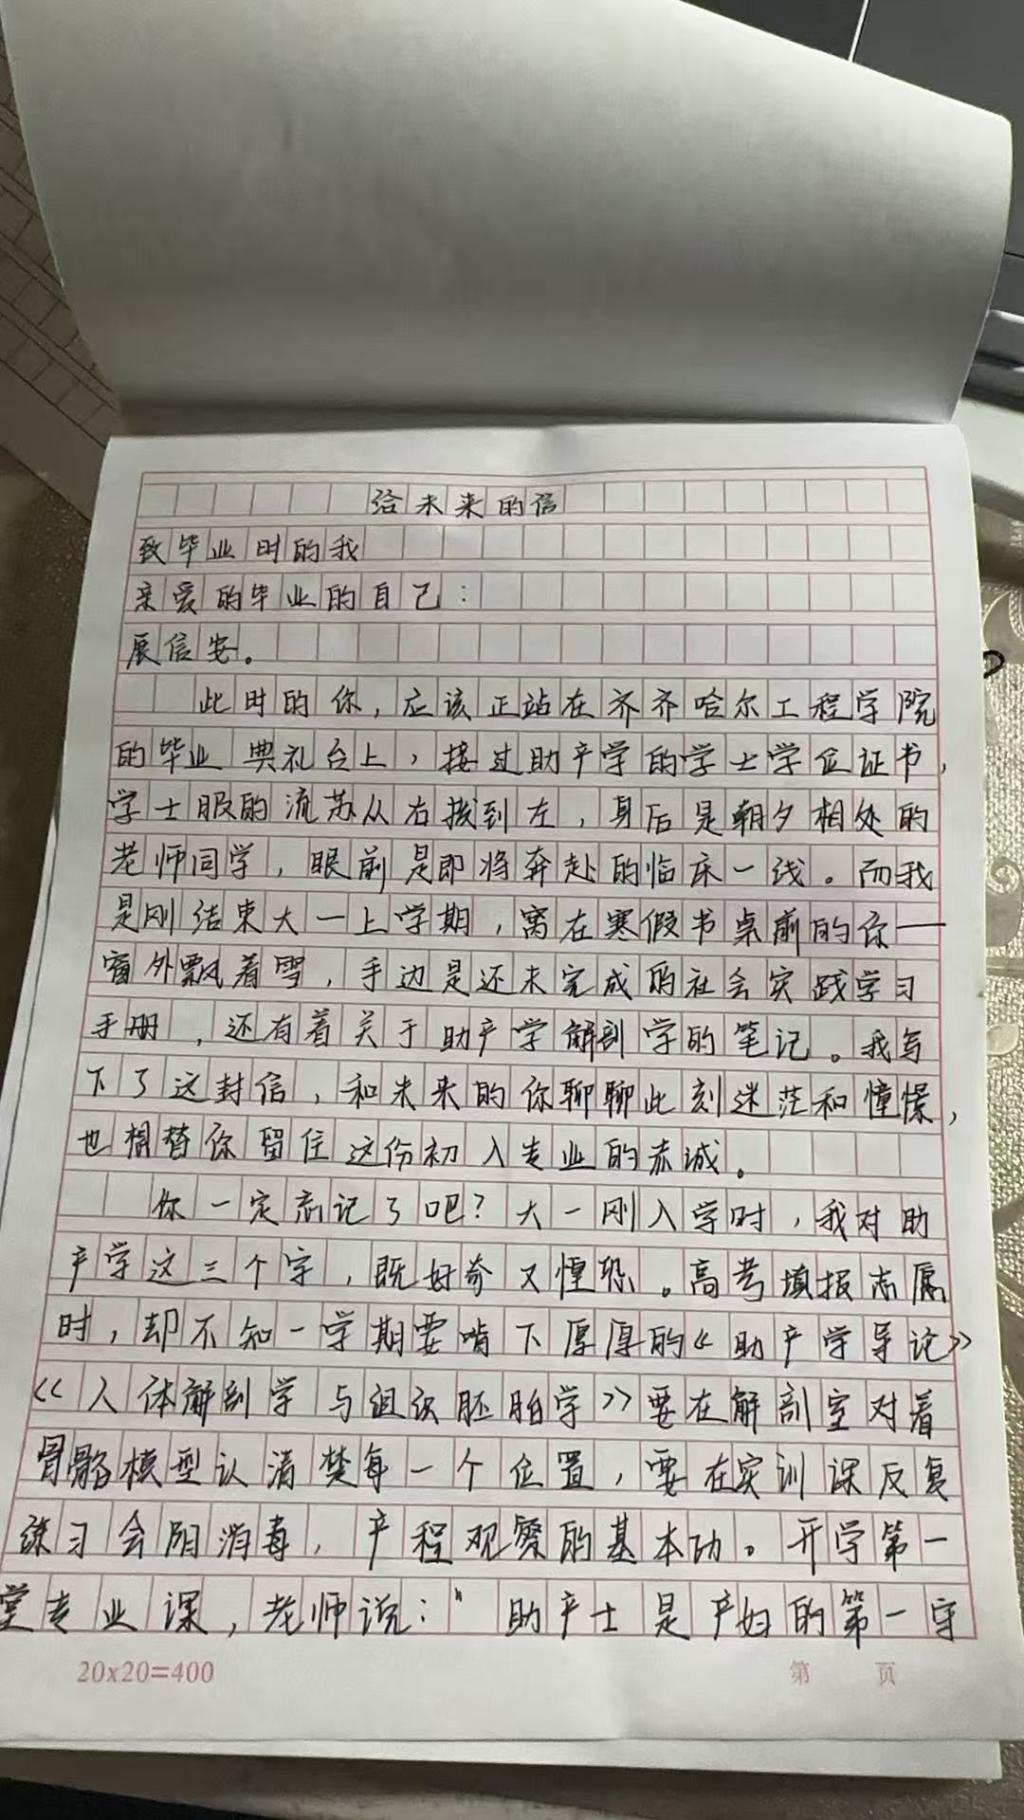 给未来的信
致毕业时的我
亲爱的毕业的自己：
展信安。
此时的你，应该正站在齐齐哈尔工程学院
的毕业典礼台上，接过助产学的学士学位证书，
学士服的流苏从右拨到左，身后是朝夕相处的
老师同学，眼前是即将奔赴的临床一线。而我
是刚结束大一上学期，窝在寒假书桌前的你——
窗外飘着雪，手边是还未完成的社会实践学习
手册，还有着关于助产学解剖学的笔记。我写
下了这封信，和未来的你聊聊此刻迷茫和憧憬，
也想替你留住这份初入专业的赤诚。
你一定忘记了吧？大一刚入学时，我对助
产学这三个字，既好奇又惶恐。高考填报志愿
时，却不知一学期要啃下厚厚的《助产学导论》
《人体解剖学与组织胚胎学》要在解剖室对着
骨骼模型认清楚每一个位置，要在实训课反复
练习会阴消毒，产程观察的基本功。开学第一
堂专业课，老师说：“助产士是产妇的第一守
20x20=400
第 页